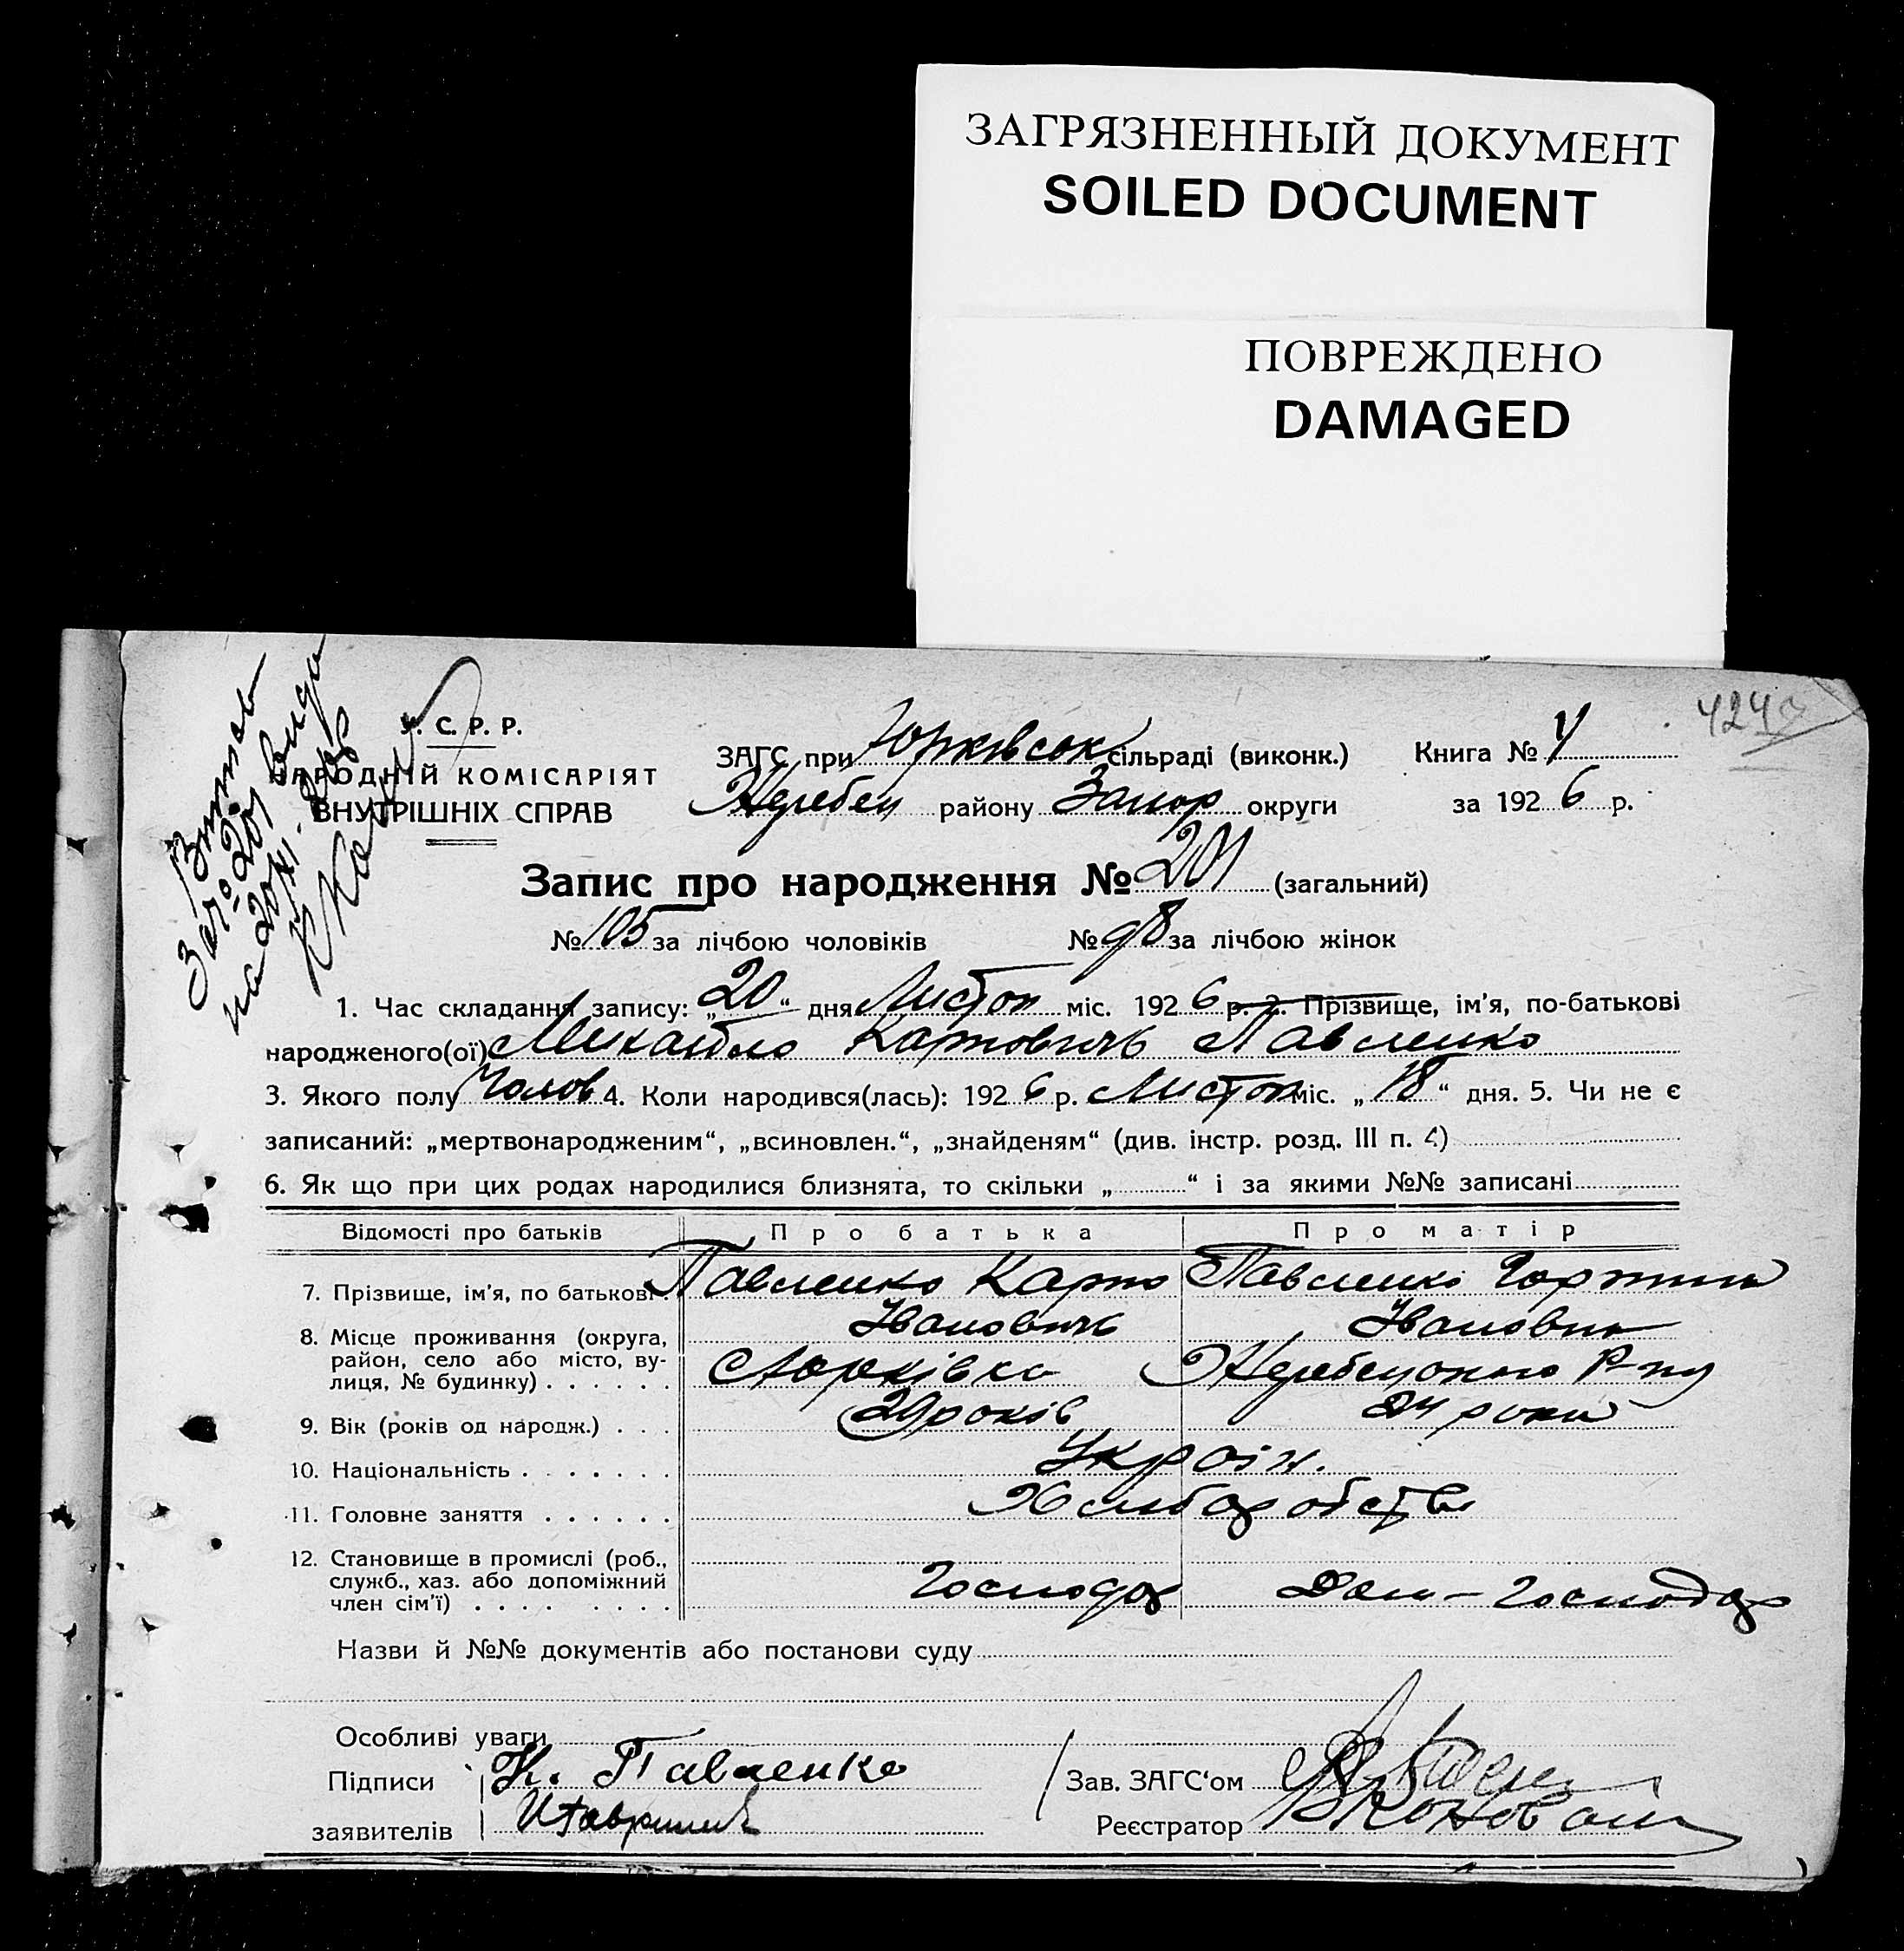 ЗАГРЯЗНЕННЫЙ ДОКУМЕНТ
SOILED DOCUMENT
ПОВРЕЖДЕНО
DAMAGED
424
У. С. Р. Р.
НАРОДНІЙ КОМІСАРІЯТ
ВНУТРІШНІХ СПРАВ
Витяг
за № 201 вида
на 20/XI-
ЗАГС при Юрківськ сільраді (виконк.) Книга №
Жеребец району Запор округи за 1926 р.
Запис про народження № 201 (загальний)
№ 105 за лічбою чоловіків № 98 за лічбою жінок
1. Час складання запису: „20“ дня Листоп міс. 1926 р. 2. Прізвище, ім'я, по-батькові
народженого(ої) Михайло Карпович Павленко
3. Якого полу Чолов 4. Коли народився(лась): 1926 р. Листоп міс. „18“ дня. 5. Чи не є
записаний: „мертвонародженим“, „всиновлен.“, „знайденям“ (див. інстр. розд. III п. 4)
6. Як що при цих родах народилися близнята, то скільки „ “ і за якими №№ записані
Відомості про батьків Про батька Про матір
7. Прізвище, ім'я, по батькові. Павленко Карпо Павленко Горпина
Іванович Івановна
8. Місце проживання (округа,
район, село або місто, ву-
лиця, № будинку) . . . . . . Юрківка Жеребецького Р-ну
9. Вік (років од народж.) . . . 29 років 24 роки
10. Національність . . . . . . . Україн.
11. Головне заняття . . . . . . Хлиборобств
12. Становище в промислі (роб.,
служб., хаз. або допоміжний
член сім'ї) . . . . . . . . Господар Дом-Господар
Назви й №№ документів або постанови суду
Особливі уваги
Підписи К. Павленко Зав. ЗАГС'ом
заявителів Реєстратор